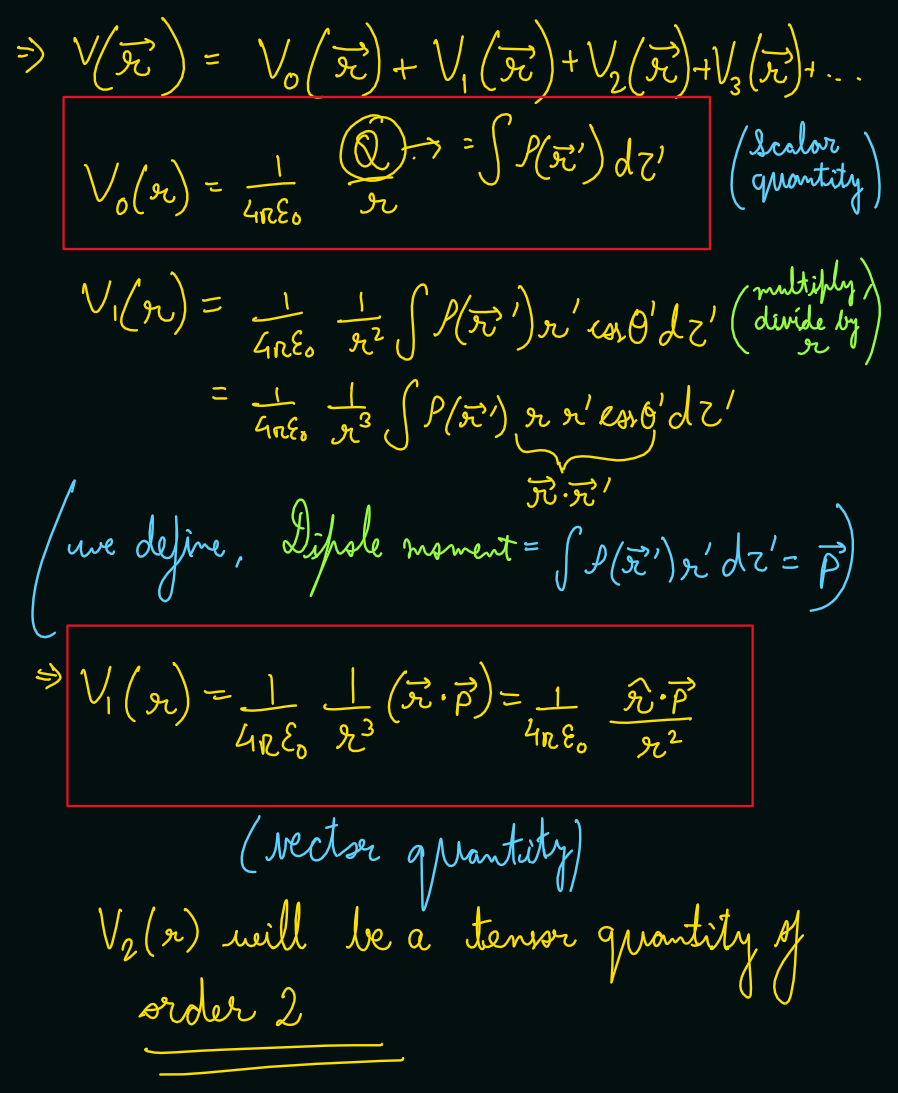 ⇒ V(r⃗) = V₀(r⃗) + V₁(r⃗) + V₂(r⃗) + V₃(r⃗) + ...
V₀(r) = 1/4πε₀ Q/r → = ∫ρ(r⃗')dτ' (scalar quantity)
V₁(r) = 1/4πε₀ 1/r² ∫ρ(r⃗')r' cosθ'dτ' (multiply, divide by r)
= 1/4πε₀ 1/r³ ∫ρ(r⃗') r r' cosθ'dτ'
r⃗·r⃗'
(we define, Dipole moment = ∫ρ(r⃗')r'dτ' = p⃗)
⇒ V₁(r) = 1/4πε₀ 1/r³ (r⃗·p⃗) = 1/4πε₀ r̂·p⃗/r²
(vector quantity)
V₂(r) will be a tensor quantity of
order 2